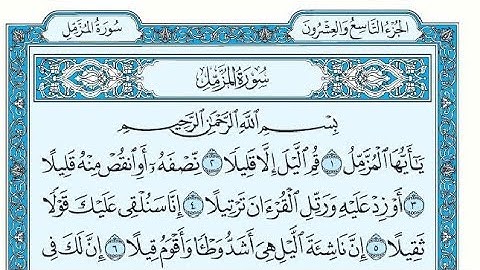 الجزء التاسع والعشرون
سورة المزمل
سُورَةُ الْمُزَّمِّلِ
بِسْمِ اللَّهِ الرَّحْمَٰنِ الرَّحِيمِ
يَٰٓأَيُّهَا ٱلْمُزَّمِّلُ ١ قُمِ ٱلَّيْلَ إِلَّا قَلِيلًا ٢ نِّصْفَهُۥٓ أَوِ ٱنقُصْ مِنْهُ قَلِيلًا
٣ أَوْ زِدْ عَلَيْهِ وَرَتِّلِ ٱلْقُرْءَانَ تَرْتِيلًا ٤ إِنَّا سَنُلْقِى عَلَيْكَ قَوْلًا
ثَقِيلًا ٥ إِنَّ نَاشِئَةَ ٱلَّيْلِ هِىَ أَشَدُّ وَطْـًٔا وَأَقْوَمُ قِيلًا ٦ إِنَّ لَكَ فِى